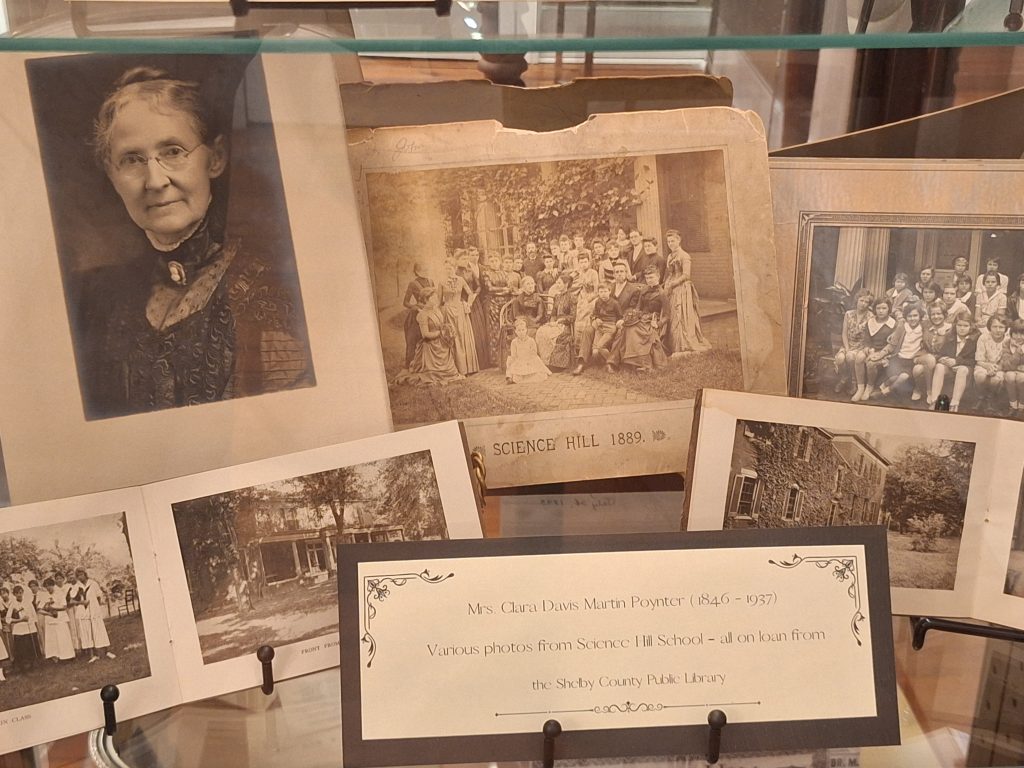 SCIENCE HILL 1889.
FRONT FROM
ON CLASS
Mrs. Clara Davis Martin Poynter (1846 - 1937)
Various photos from Science Hill School - all on loan from
the Shelby County Public Library
DR. M.